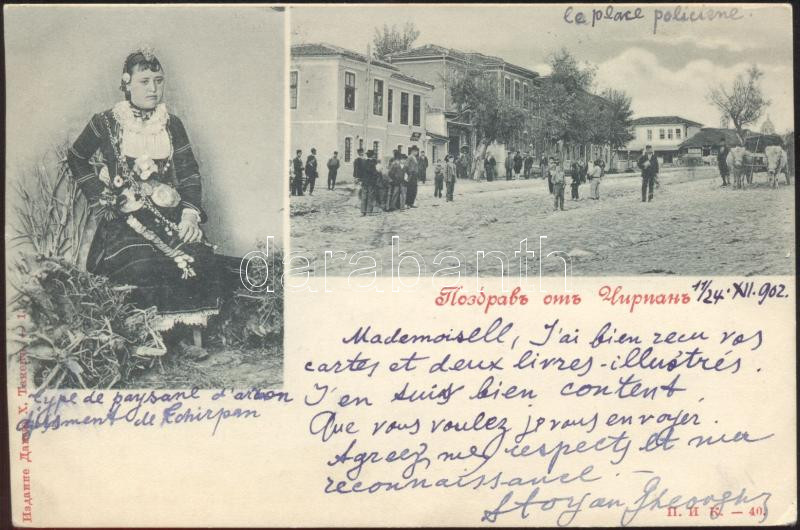 le place policiene.
darabanth
Поздравъ отъ Чирпанъ
11/24. XII. 902.
Mademoisell, J'ai bien recu vos
cartes et deux livres-illustrés.
J'en suis bien content
Que vous voulez je vous envoyer.
Agreez mes respects et ma
reconnaissance.
Stoyan Gheorgh
type de paysane d'aron
gissment de Tchirpan
П. И К. — 40.
Издание Х. 1